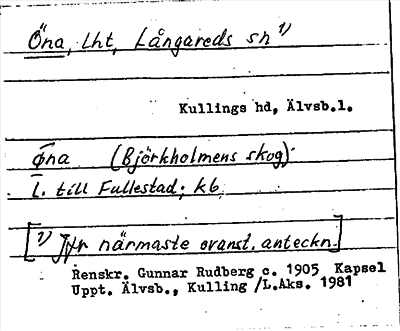 Öna, lht, Långareds sn 1)
Kullings hd, Älvsb.l.
øna (Björkholmens skog)
L. till Fullestad; kb.
[1) Jfr närmaste ovanst. anteckn.]
Renskr. Gunnar Rudberg c. 1905 Kapsel
Uppt. Älvsb., Kulling /L.Aks. 1981